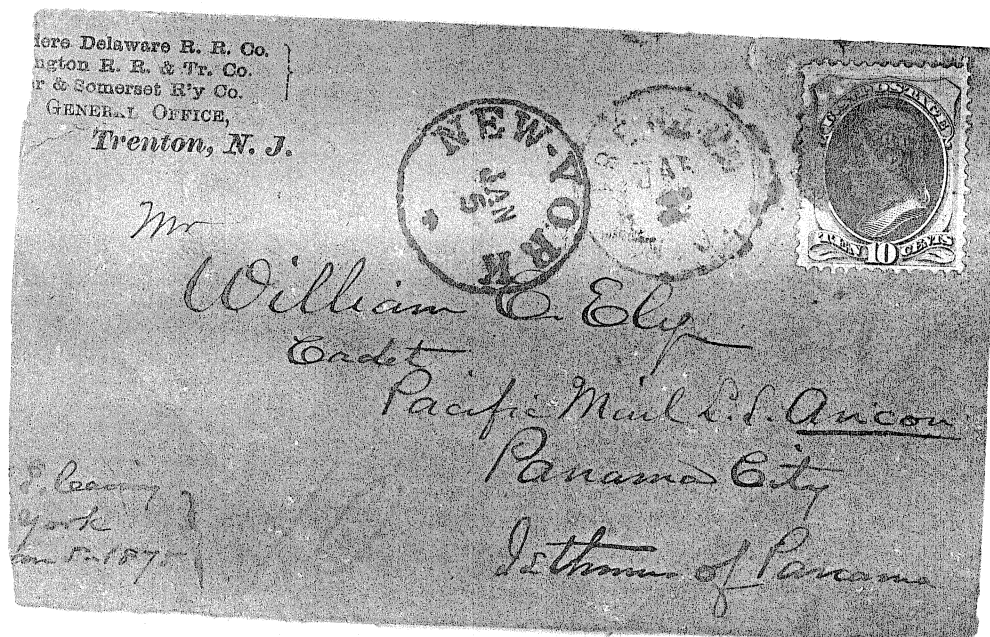 dere Delaware R. R. Co.
ngton R. R. & Tr. Co.
r & Somerset R'y Co.
GENERAL OFFICE,
Trenton, N. J.
NEW-YORK
JAN
5
TEN 10 CENTS
Mr
William C. Ely
Cadet
Pacific Mail S. S. Ancon
Panama City
Isthmus of Panama
S. leaving
York
Jan 5-1875